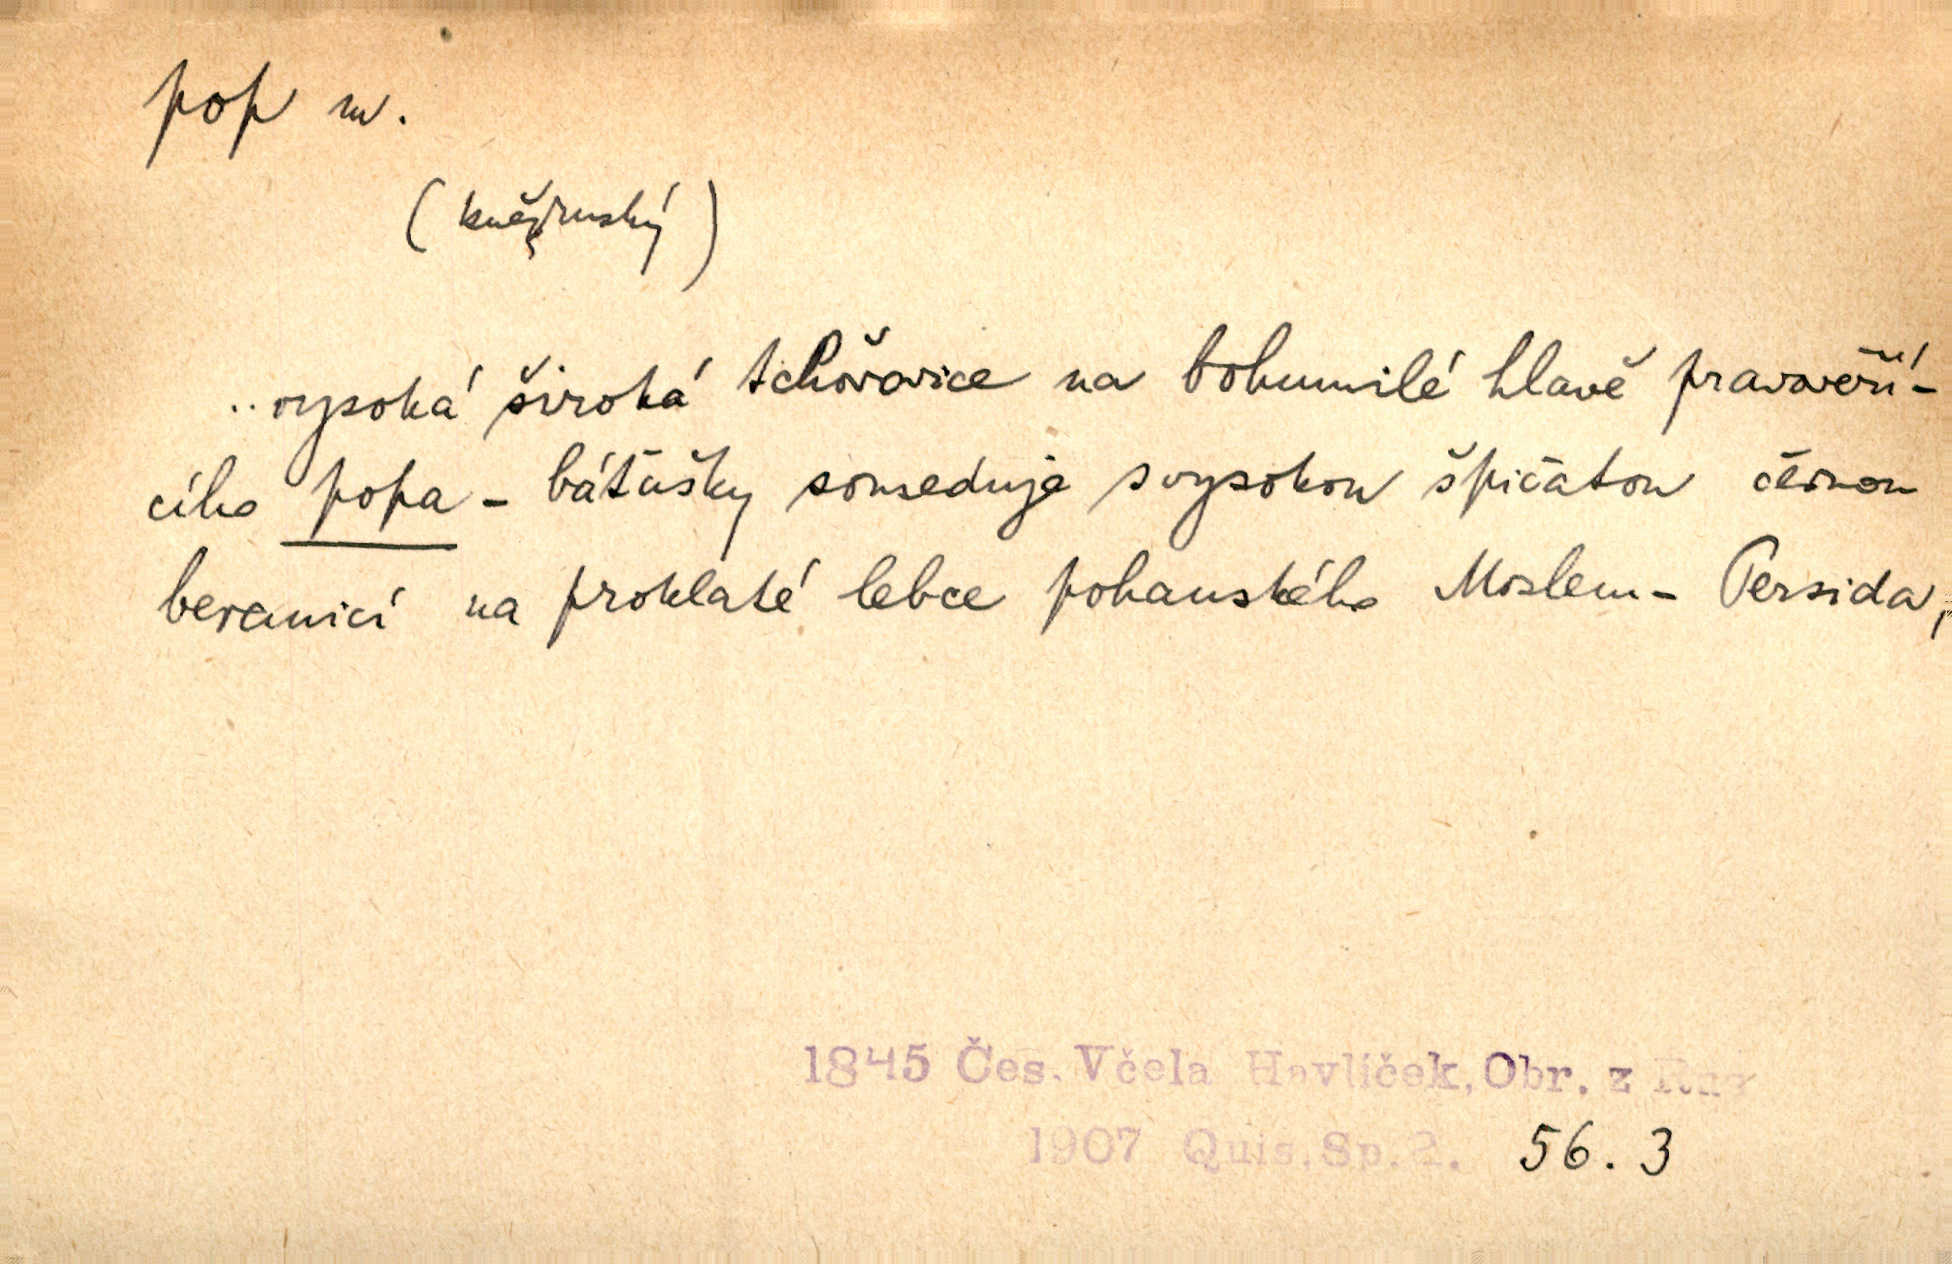 pop m.
(kněz ruský)
..vysoká široká tchořovice na bohumilé hlavě pravověří-
cího popa - báťušky souseduje s vysokou špičatou černou
beranicí na proklaté lebce pohanského Moslem - Persida,
1845 Čes. Včela Havlíček, Obr. z Rus
1907 Quis. Sp. 2. 56. 3